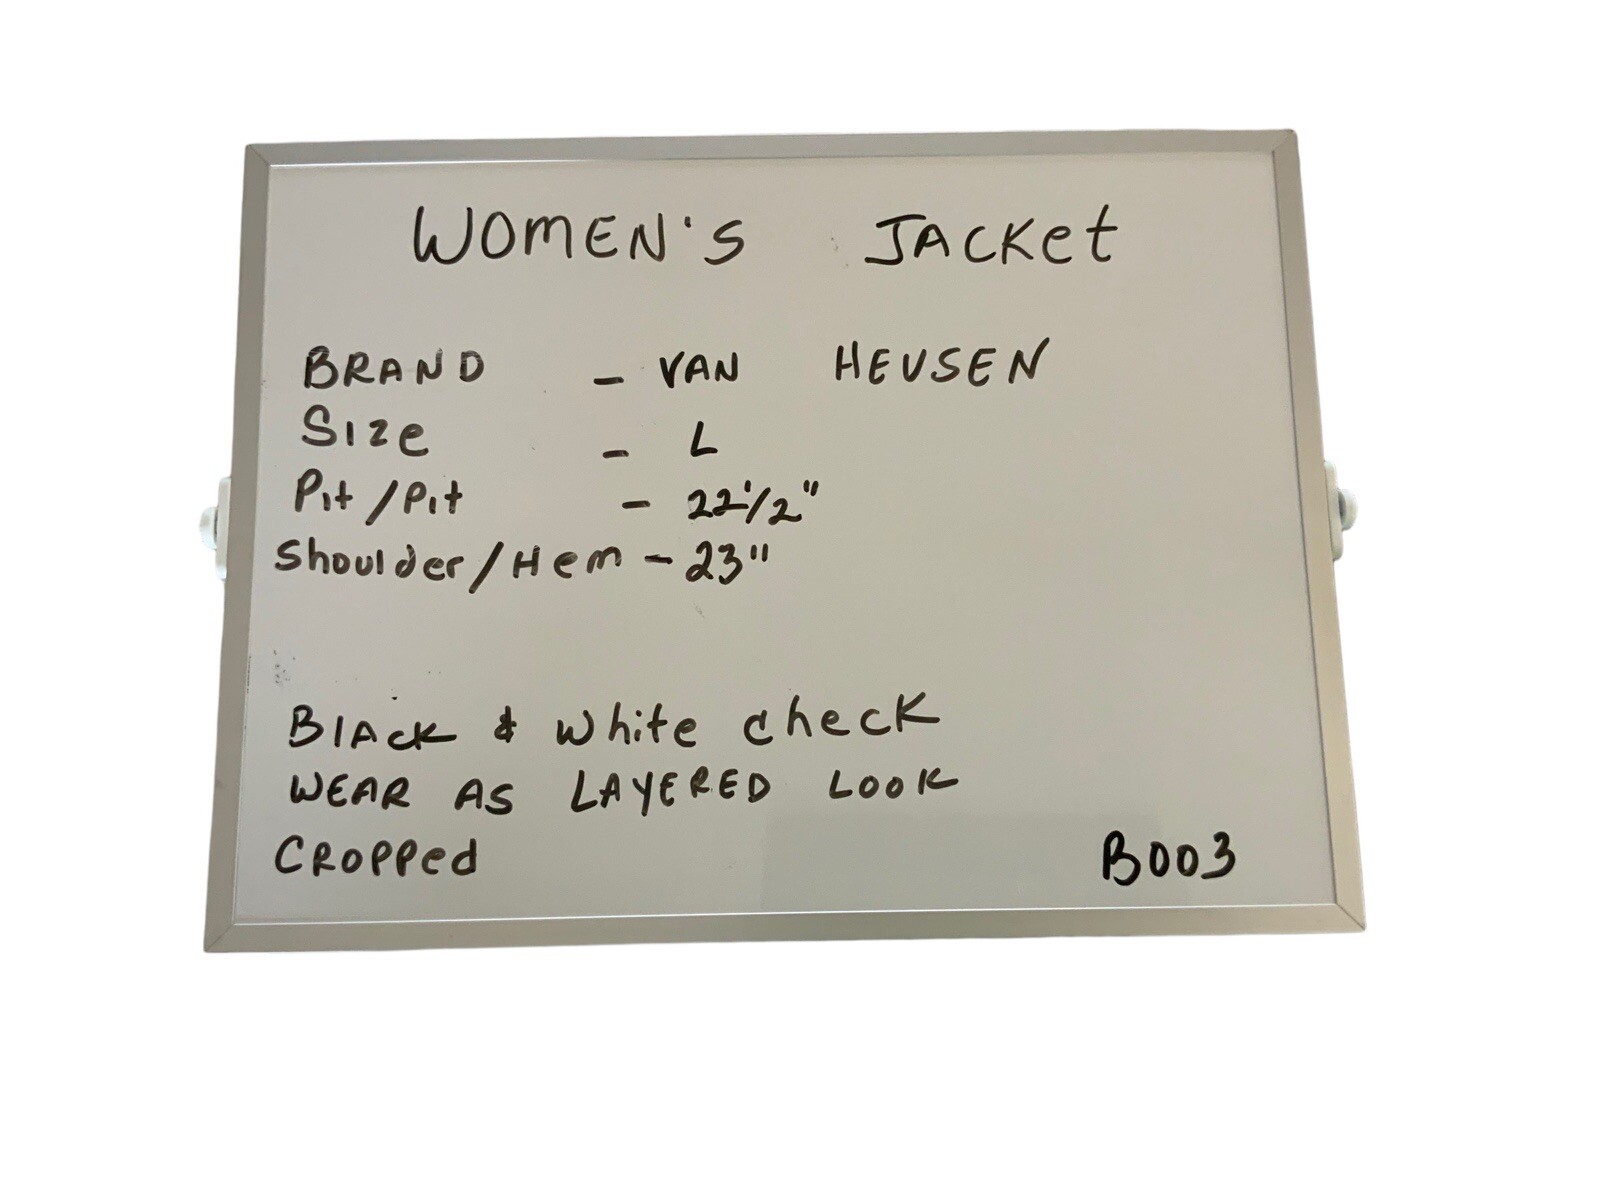 WOMEN'S JACKet
BRAND - VAN HEUSEN
SIZe - L
Pit/Pit - 22 1/2"
Shoulder/Hem - 23"
BlAcK & white check
WEAR AS LAYERED LOOK
CROPPed
B003